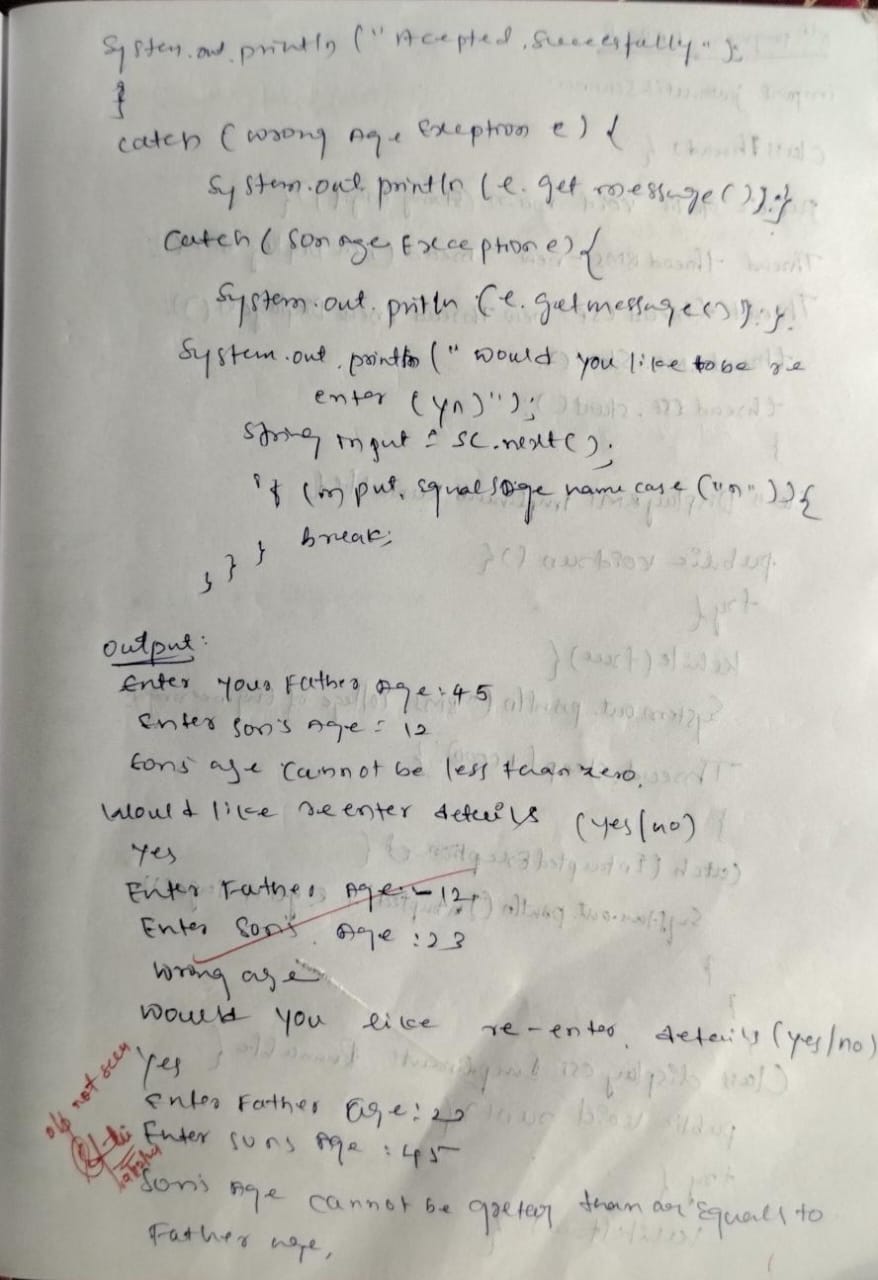 System.out.println ("Acepted, Successfully");
}
catch (wrong Age Exception e) {
System.out.println (e.get message());}
Catch (Son age Exception e) {
System.out.pritln (e.getmessage());}
System.out.println (" would you like to be re
enter (yn)");
String input = sc.next();
if (input.equalsIge name case ("n")){
break;
} } }
Output:
Enter your Father Age: 45
Enter Son's Age = 12
Sons age cannot be less than zero.
Would like re enter details (yes/no)
Yes
Enter Father Age: -12
Enter Son's Age : 23
Wrong age
Would you like re-enter details (yes/no)
Yes
Enter Father age: 22
Enter suns Age : 45
Son's Age cannot be greter than or equals to
Father age,
o/p not seen